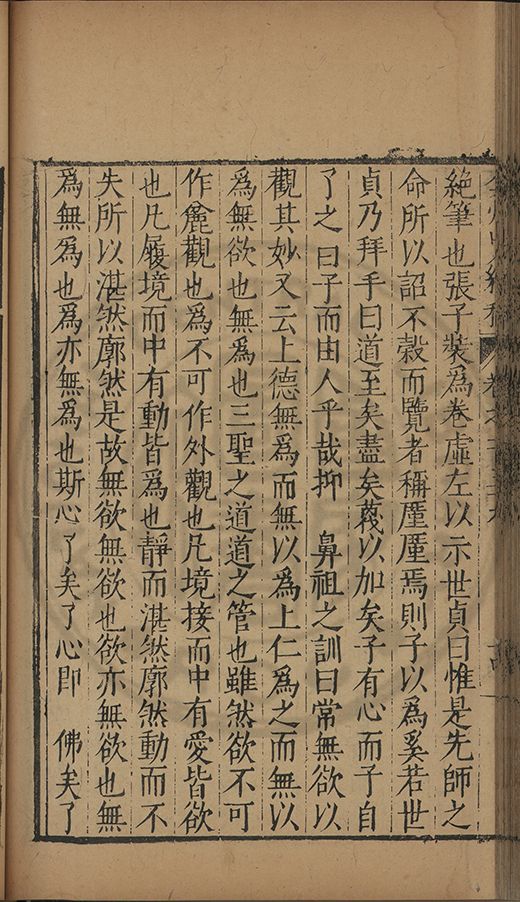 絕筆也張子裝爲卷虛左以示世貞曰惟是先師之
命所以詔不穀而覽者稱厪厪焉則子以爲奚若世
貞乃拜手曰道至矣盡矣蔑以加矣子有心而子自
了之曰子而由人乎哉抑 鼻祖之訓曰常無欲以
觀其妙又云上德無爲而無以爲上仁爲之而無以
爲無欲也無爲也三聖之道道之管也雖然欲不可
作麄觀也爲不可作外觀也凡境接而中有愛皆欲
也凡履境而中有動皆爲也靜而湛然廓然動而不
失所以湛然廓然是故無欲無欲也欲亦無欲也無
爲無爲也爲亦無爲也斯心了矣了心即 佛矣了